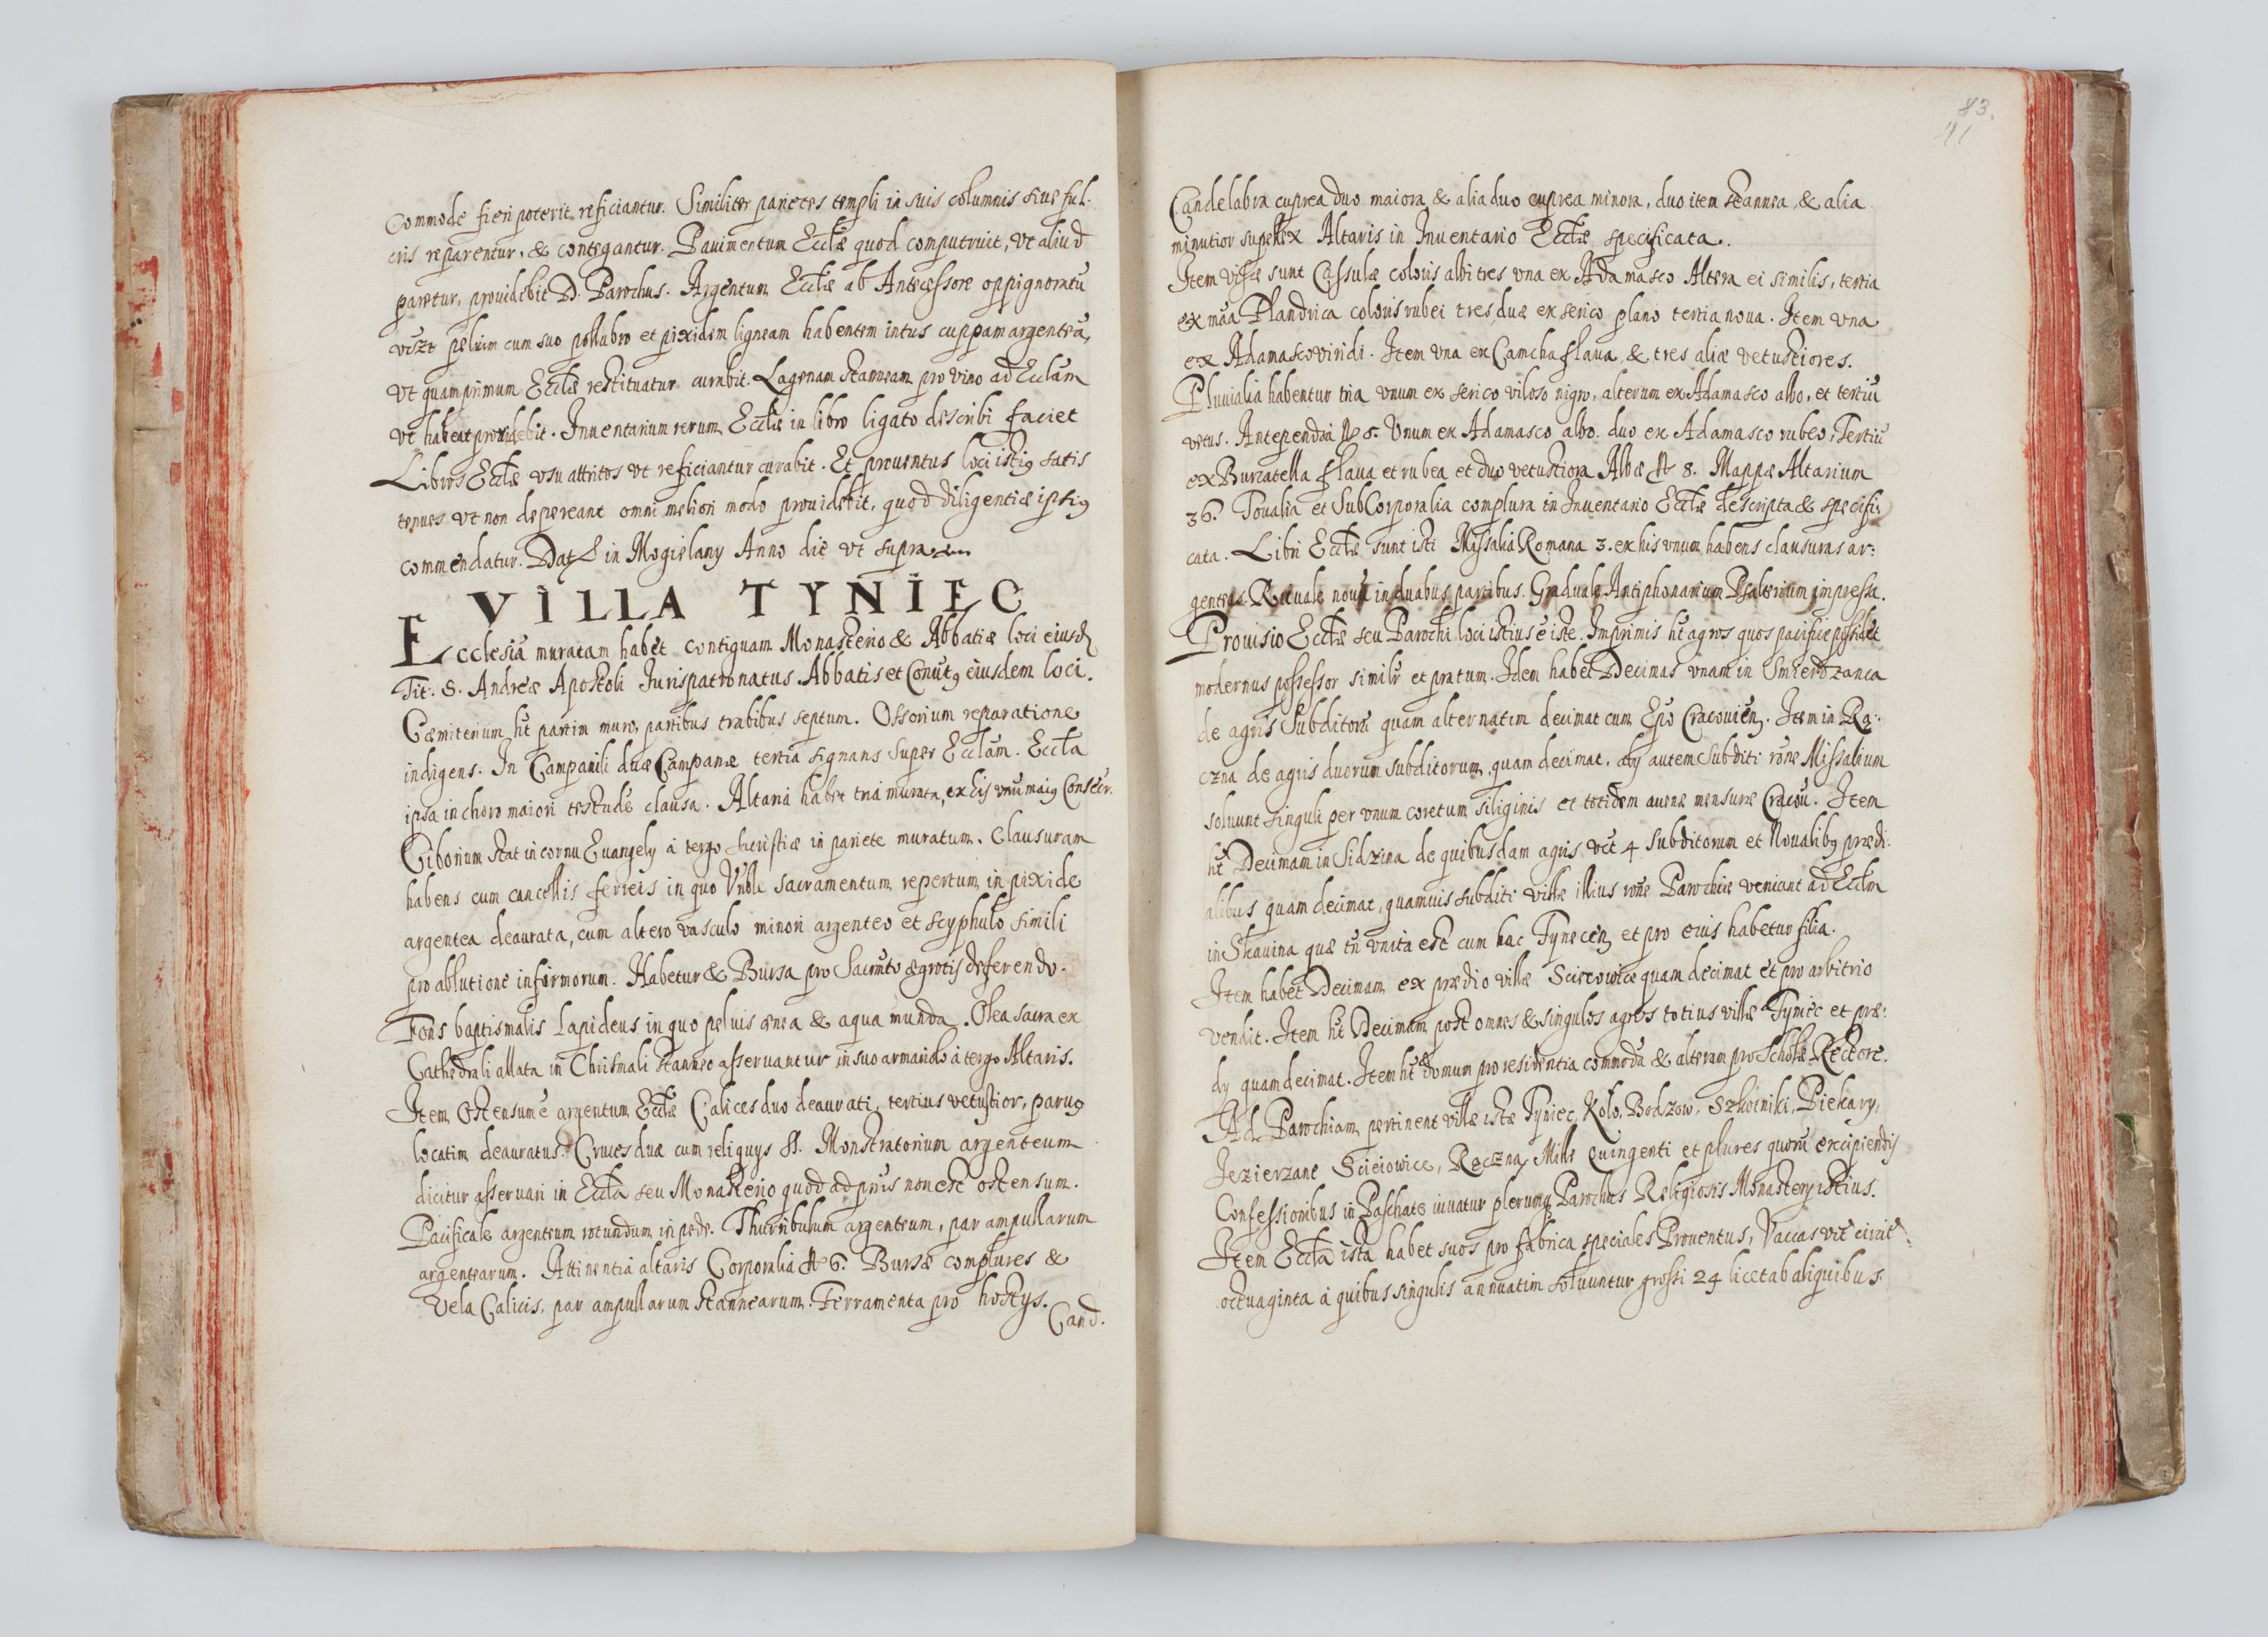 Commode fieri poterit reficiantur. Similiter parietes templi in suis columnis siue ful-
cris reparentur, & contegantur. Pauimentum Eccłæ quod computruit, vt aliud
paretur, prouidebit D. Parochus. Argentum Eccłæ ab Antecessore oppignoratū
vczt peluim cum suo pollubro et pixidem ligneam habentem intus cuppam argenteā,
vt quamprimum Eccłæ restituatur curabit. Lagenam stanneam pro vino ad Ecclām
vt habeat prouidebit. Inuentarium rerum Eccłæ in libro ligato describi faciet
Libros Eccłæ vsu attritos vt reficiantur curabit. Et prouentus loci istig satis
tenues vt non depereant omni meliori modo prouidebit, quod diligentiæ ipsig
commendatur. Datz in Mogielany Anno die vt supra
VILLA TYNIEC
Ecclesiā muratam habet contiguam Monasterio & Abbatiæ loci eiusd
Tit. S. Andreæ Apostoli Iurispatronatus Abbatis et Conūtg eiusdem loci.
Cæmiterium ht partim muro, partibus trabibus septum. Ossorium reparatione
indigens. In Campanili duæ Campanæ tertia signans super Ecclām. Eccła
ipsa in choro maiori testude clausa. Altaria habet tria murata, ex his vnū maig Consecr.
Ciborium stat in cornu Euangely à tergo sacristiæ in pariete muratum. Clausuram
habens cum cancellis ferreis in quo Vnble sacramentum repertum in pixide
argentea deaurata, cum altero vasculo minori argenteo et scyphulo simili
pro ablutione infirmorum. Habetur & Bursa pro Sacrmto ægrotis deferendo.
Fons baptismalis Lapideus in quo peluis ænea & aqua munda. Olea sacra ex
Cathedrali allata in Chrismali stanneo asseruantur in suo armariolo à tergo Altaris.
Item Ostensum ē argentum Eccłæ Calices duo deaurati, tertius vetustior, parug
locatim deauratus. Cruces duæ cum reliquys SS. Monstratorium argenteum
dicitur asseruari in Eccła seu Monasterio quod ad prns non est ostensum.
Pacificale argenteum rotundum in pede. Thurribulum argenteum, par ampullarum
argentearum. Attinentia altaris Corporalia No 6. Bursæ complures &
Vela Calicis, par ampullarum stannearum. Ferramenta pro hostys.
Cand.
83.
41
Candelabra cuprea duo maiora & alia duo cuprea minora, duo item stannea, & alia
minutior supellex Altaris in Inuentario Eccłæ specificata.
Item visæ sunt Casulæ coloris albi tres vna ex Adamasco Altera ei similis, tertia
ex mãa Flandrica coloris rubei tres duæ ex serico plano tertia noua. Item vna
ex Adamasco viridi. Item vna ex Camcha flaua & tres aliæ vetustiores.
Pluuialia habentur tria vnum ex serico viloso nigro, alterum ex Adamasco albo, et tertiū
vetus. Antependia No 5. Vnum ex Adamasco albo. duo ex Adamasco rubeo, Tertiū
ex Burcatella flaua et rubea et duo vetustiora Albæ No 8. Mappæ Altarium
36. Toualia et SubCorporalia complura in Inuentario Eccłæ descripta & specifi:
cata. Libri Eccłæ sunt isti Missalia Romana 3. ex his vnum habens clausuras ar:
genteas. Rituale nouū in duabus partibus. Graduale Antiphonarium Psalterium impressa.
Prouisio Eccłæ seu Parochi loci istius ē iste. Imprimis ht agros quos pacifice possidet
modernus possessor similr et pratum. Idem habet Decimas vnam in Smierdzanca
de agris Subditorū quam alternatim decimat cum Epo Cracouien. Item in Rą:
czna de agris duorum subditorum quam decimat, aly autem Subditi rōne Missalium
soluunt singuli per vnum coretum siliginis et totidem auenæ mensuræ Cracou. Item
ht Decimam in Sidzina de quibusdam agris vct 4 Subditorum et Noualibg prædi:
alibus quam decimat, quamuis subditi villæ illius rōne Parochiæ veniant ad Ecclm
in Skauina quæ tn vnita est cum hac Tynecen et pro eius habetur filia.
Item habet Decimam ex prædio villæ Scieiowice quam decimat et pro arbitrio
vendit. Item ht Decimam post omnes & singulos agros totius villæ Tyniec et præ:
dy quam decimat. Item ht & domum pro residentia commodā & alteram pro Scholæ Rectore.
Ad Parochiam pertinent villæ istæ Tyniec, Kolo, Bodzow, Szkotniki, Piekary,
Jezierzane Scieiowice, Rączna, Mille quingenti et plures quorū excipiendis
Confessionibus in Paschate iuuatur plerumq Parochus Religiosis Monastery istius.
Item Eccła ista habet suos pro fabrica speciales Prouentus, Vaccas vct circit
octuaginta à quibus singulis annuatim soluuntur grossi 24 licet ab aliquibus